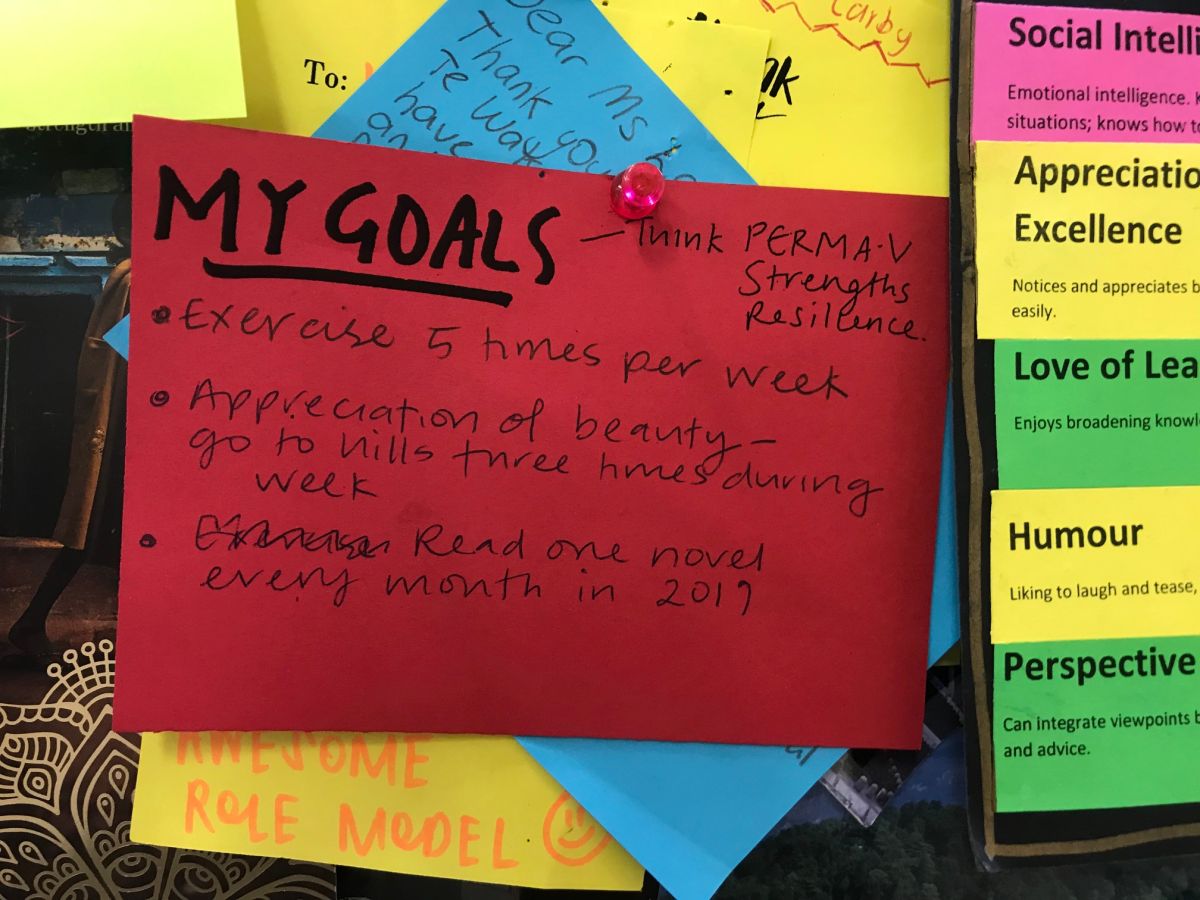 Strength an
To:
Carby
Dear Ms
Thank you
Te Way
have
an
MY GOALS
– Think PERMA-V
Strengths
Resilience.
• Exercise 5 times per week
• Appreciation of beauty –
go to hills three times during
week
• Read one novel
every month in 2019
AWESOME
ROLE MODEL
Social Intelli
Emotional intelligence. K
situations; knows how to
Appreciatio
Excellence
Notices and appreciates b
easily.
Love of Lea
Enjoys broadening knowl
Humour
Liking to laugh and tease,
Perspective
Can integrate viewpoints b
and advice.